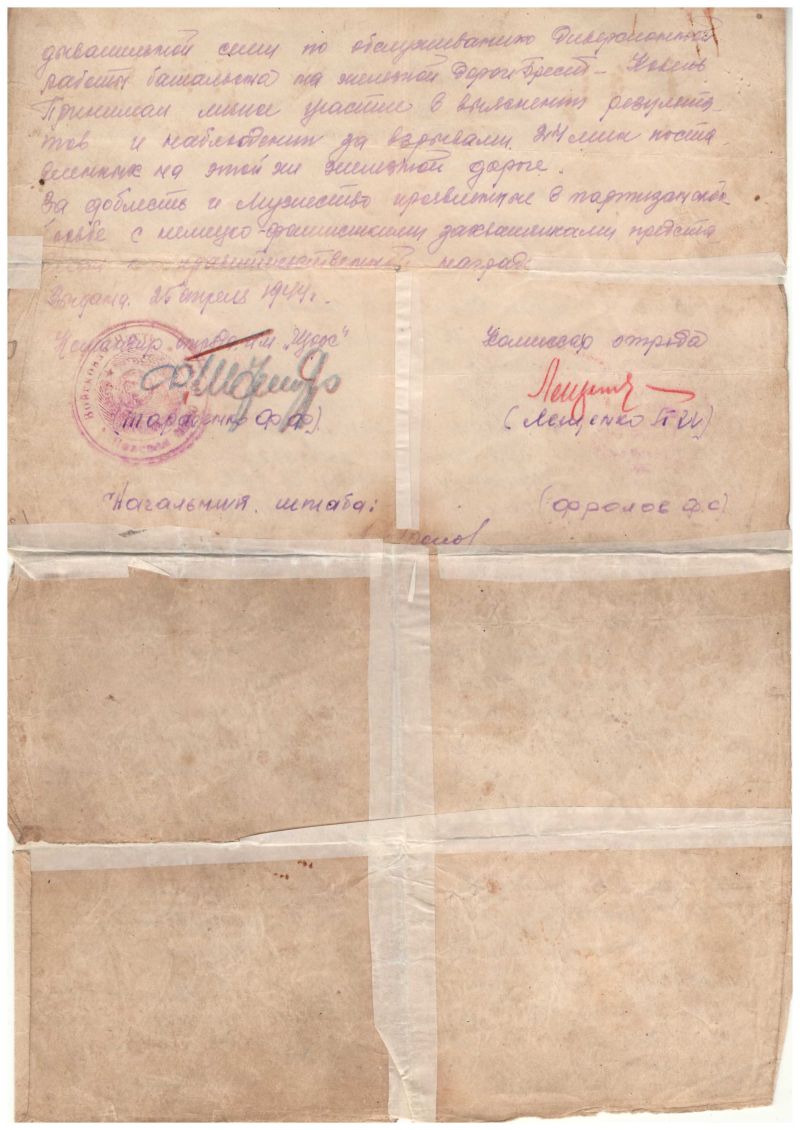 дывательной сети по обслуживанию Диверсионной
работы батальона на железной Дороги Брест – Ковель
Принимал личное участие в выяснении результа
тов и наблюдении за взрывами 24 мин поста
вленных на этой же железной дороге.
За доблесть и Мужество проявленные в партизанской
борьбе с немецко-фашисткими захватчиками предста
к правительственной награде
Выдана. 25 апрель 1944 г.
Командир отряда им "Щорс"
Комиссар отряда
Войсковая
(Тарасенко Ф Ф)
(Лещенко П И)
Начальник. штаба:
(Фролов Ф с)